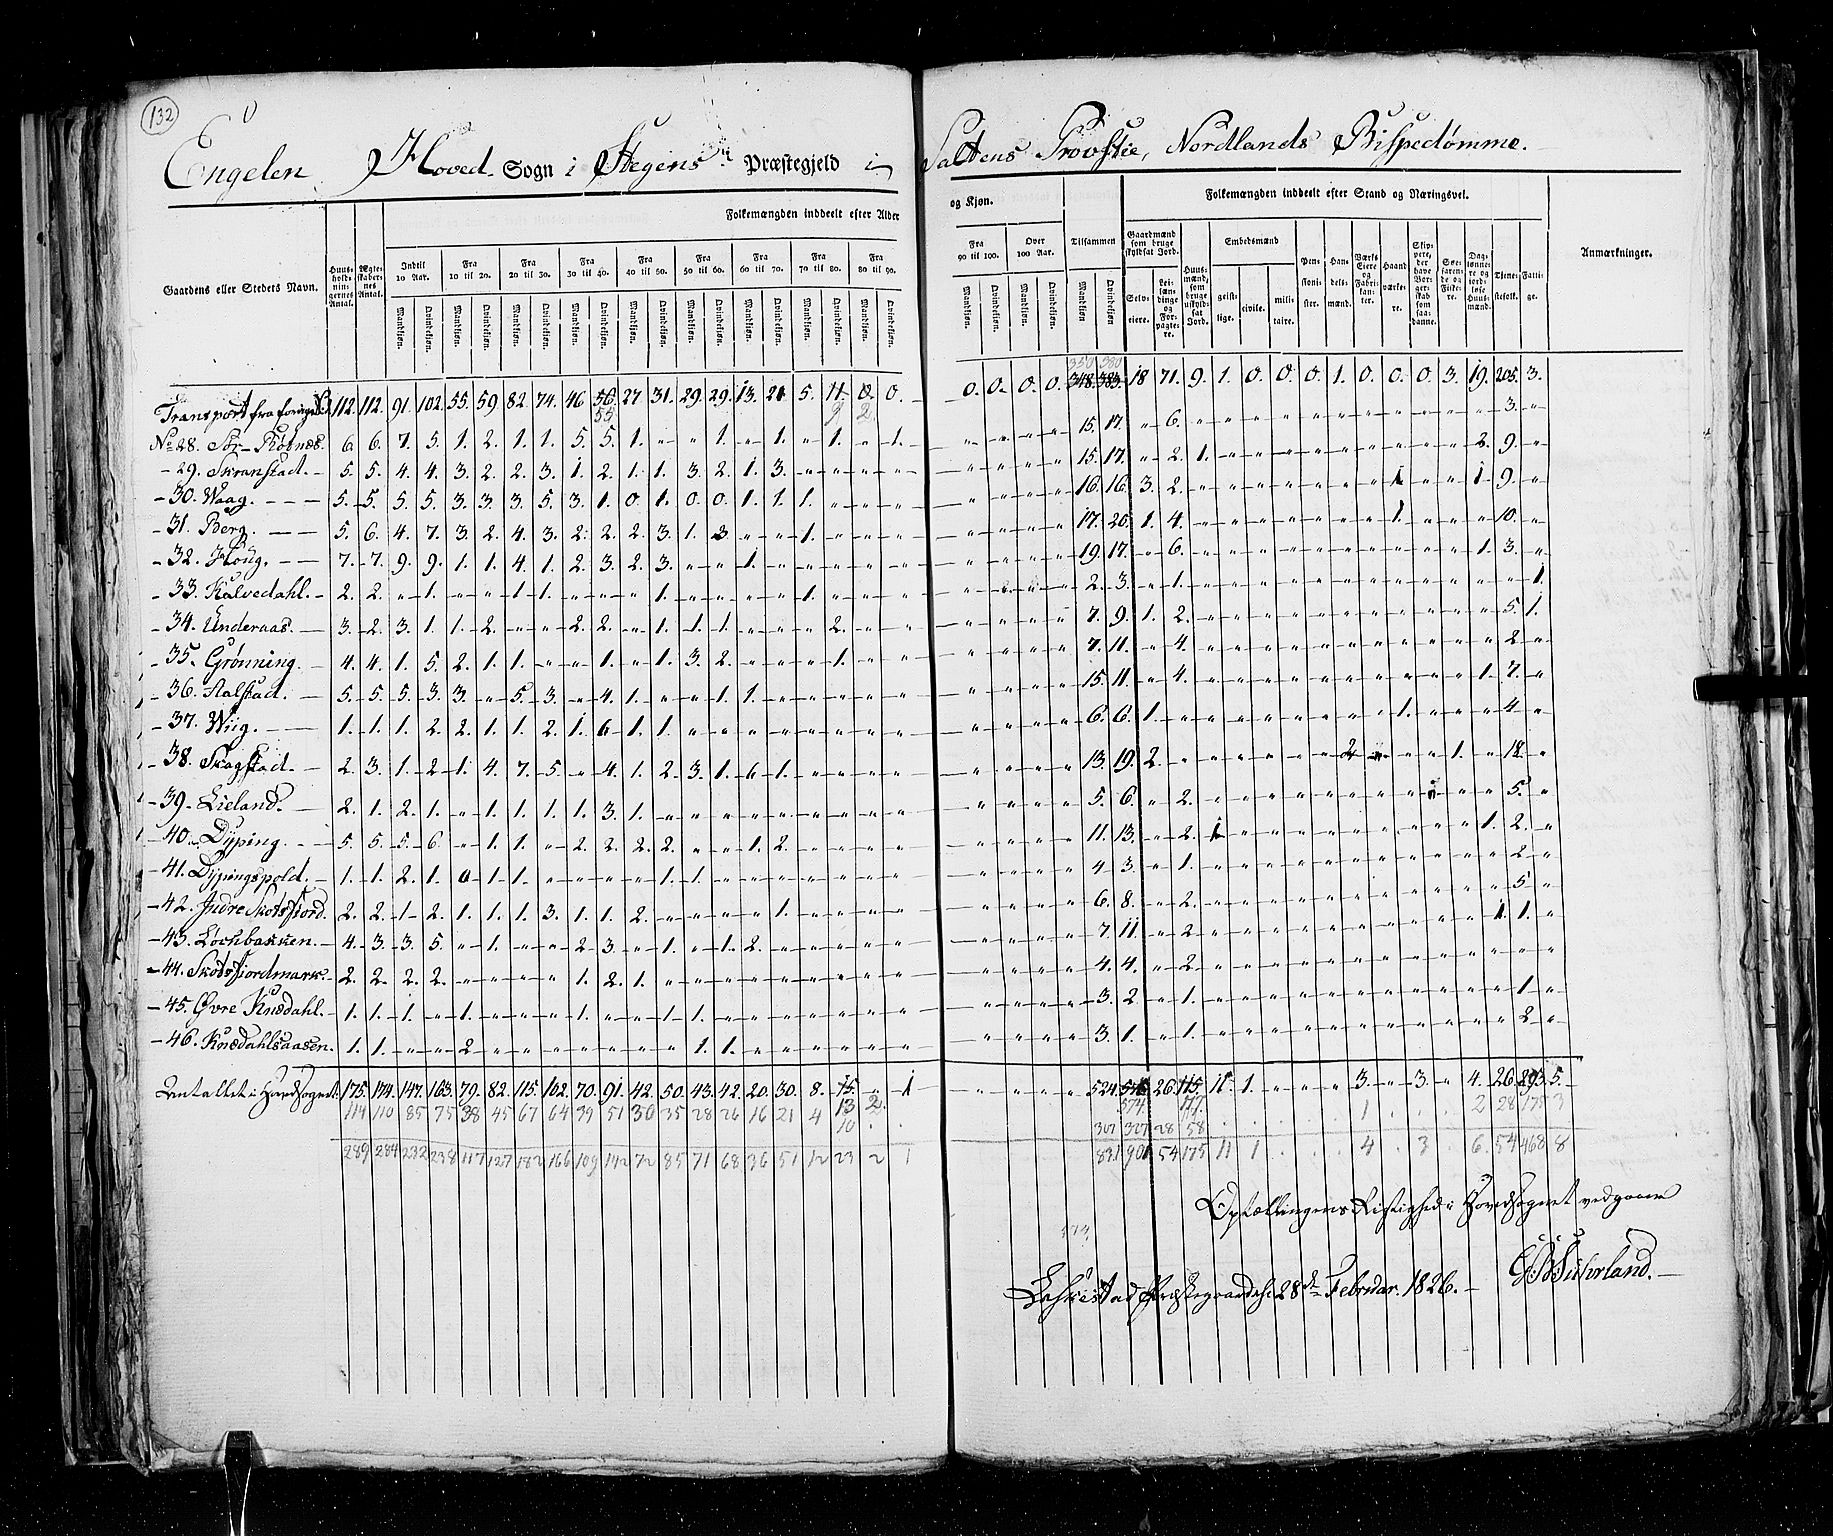 132
Engeløen Hoved Sogn i Stegens Præstegjeld i Saltens Provstie, Nordlands Bispedømme.
Folkemængden inddeelt efter Alder og Kjøn. Tilsammen Folkemængden inddeelt efter Stand og Næringsvei. Anmærkninger.
Gaardens eller Stedets Navn. Huusholdningernes Antal. Ægteskabernes Antal. Indtil 10 Aar. Fra 10 til 20. Fra 20 til 30. Fra 30 til 40. Fra 40 til 50. Fra 50 til 60. Fra 60 til 70. Fra 70 til 80. Fra 80 til 90. Fra 90 til 100. Over 100 Aar.
Gaardmænd som bruge skyldsat Jord. Selveiere. Leilændinge og Forpagtere. Huusmænd, som bruge uskyldsat Jord. Embedsmænd geistlige. civile. militaire. Pensionister. Handelsmænd. Værks Eiere og Fabrikanter. Haandværkere. Skippere, der have Borgerskab som saadanne. Søefarende og Fiskere. Daglønnere og jordløse Huusmænd. Tienestefolk. Fattige.
Mandkjøn. Qvindekjøn.
350 380
Transport fra forrige Side 112. 112. 91. 102. 55. 59. 82. 74. 46 56. 27. 31. 29. 29. 13. 21 5. 11. 0. 0. 0. 0. 0. 0. 348. 383. 18 71. 9. 1. 0. 0. 0. 1. 0. 0. 0. 3. 19. 205. 3.
55 9 2
No 28. Sør-Bøtnes. 6. 6. 7. 5. 1. 2. 1. 1. 5. 5. 1. " " 1. " 1. " 1. " 1. " " " " 15. 17. " 6. " " " " " " " " " " " 3. "
- 29. Skranstad. 5. 5. 4. 4. 3. 2. 2. 3. 1. 2. 1. 1. 3. 2. 1. 3. " " " " " " " " 15. 17. " 2. 1. " " " " " " " " " 2. 9. "
- 30. Waag. 5. 5. 5. 5. 3. 3. 3. 5. 3. 1. 0. 1. 0. 0. 1. 1. 1. " " " " " " " 16. 16. 3. 2. " " " " " " " 1 " " 1. 9. "
- 31. Berg. 5. 6. 4. 7. 3. 2. 4. 3. 2. 2. 2. 3. 1. 3. " " 1. " " " " " " " 17. 20. 1. 4. " " " " " " " 1. " " " 10. "
- 32. Houg. 7. 7. 9. 9. 1. 1. 4. 1. 2. 3. 2. 3. " " 1. " " " " " " " " " 19. 17. " 6. " " " " " " " " " " 1. 3. "
- 33. Kalvedahl. 2. 2. " 1. " " 1. 1. " " " 1. " " " " 1. " " " " " " " 2. 3. " 1. " " " " " " " " " " " " 1.
- 34. Underaas. 3. 2. 3. 1. 1. 2. " " 2. 2. " 1. 1. 1. " " " 2. " " " " " " 7. 9. 1. 2. " " " " " " " " " " " 5. 1.
- 35. Grønning. 4. 4. 1. 5. 2. 1. 1. " " 1. " 1. 3. 2. " " " 1. " " " " " " 7. 11. " 4. " " " " " " " " " " " 2. "
- 36. Aalstad. 5. 5. 5. 3. 3. " 5. 3. " 4. 1. " " 1. 1. " " " " " " " " " 15. 11. " 4. " " " " " " " " " " 1. 7. "
- 37. Wiig. 1. 1. 1. 2. 2. 1. 1. 2. 1. 6 1. 1. " " " " " " " " " " " " 6. 6. 1. " " " " " " " " 1. " " " 4. "
- 38. Skagstad. 2. 3. 1. 2. 1. 4. 7. 5. " 4. 1. 2. 3. 1. 6. 1. " " " " " " " " 13. 19. 2. " " " " " " 2. " " " 1. " 18. "
- 39. Lieland. 2. 1. 2. 1. " 1. 1. 1. 1. 3. 1. " " " " " " " " " " " " " 5. 6. " 2. " " " " " " " " " " " 5. "
- 40. Dyping. 5. 5. 5. 6. " 1. 1. " 2. 2. 2. 2. " " 1. 2. " " " " " " " " 11. 13. " 2. 1 " " " " " " " " " 1. 2. "
- 41. Dypingspold. 1. 1. 2. 1. 0 1. 1. " " " " 1. 1. " " " " " " " " " " " 4 3. " 1. " " " " " " " " " " " 2. "
- 42. Indre Skotsfiord. 2. 2. 1. 2. 1. 1. 1. 3. 1. 1. 2. " " " " 1. " " " " " " " " 6. 8. " 2. " " " " " " " " " " " 5. "
- 43. Lochbakken. 4. 3. 3. 5. " 1. " " 2 3. " 1. " 1. 2. " " " " " " " " " 7. 11. " 2. " " " " " " " " " " 1. 1. "
- 44. Skotsfiordmark. 2. 2. 2. 2. " " " " 1. 2. 1. " " " " " " " " " " " " " 4. 4. " 2. " " " " " " " " " " " " "
- 45. Øvre Knædahl. 1. 1. 1. " 1. " " " 1. " " 1. 1. " " " " " " " " " " " 3. 2. " 1. " " " " " " " " " " " 1. "
- 46. Knædahlsaasen. 1. 1. " " 2 " " " " " " " 1. 1. " " " " " " " " " " 3. 1. " 1. " " " " " " " " " " " 2. "
Antallet i Hovedsognet. 175. 174. 147. 163. 79. 82. 115. 102. 70. 91. 42. 50. 43. 42. 20. 30. 8. 15. " 1 " " " " 524. 26. 115. 11. 1. " " " 3. " 3. " 4. 26. 293. 5.
114 110 85 75 38 45 67 64 39 51 30 35 28 26 16 21 4 13 2. 574. 117. 1 2 28 175 3
10 307 327 28 58
289 284 232 238 117 127 182 166 109 142 72 85 71 68 36 51 12 23 2 1 831 901 54 175 11 1 4 3 6. 54 468 8
Optællingens Rigtighed i Hovedsognet vedgaaer
574
Leknestad Præstegaard d. 28de Februar. 1826.